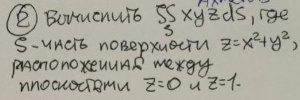 ② Вычислить ∬ xyz dS, где
S
S-часть поверхности z=x²+y²,
расположенная между
плоскостями z=0 и z=1.